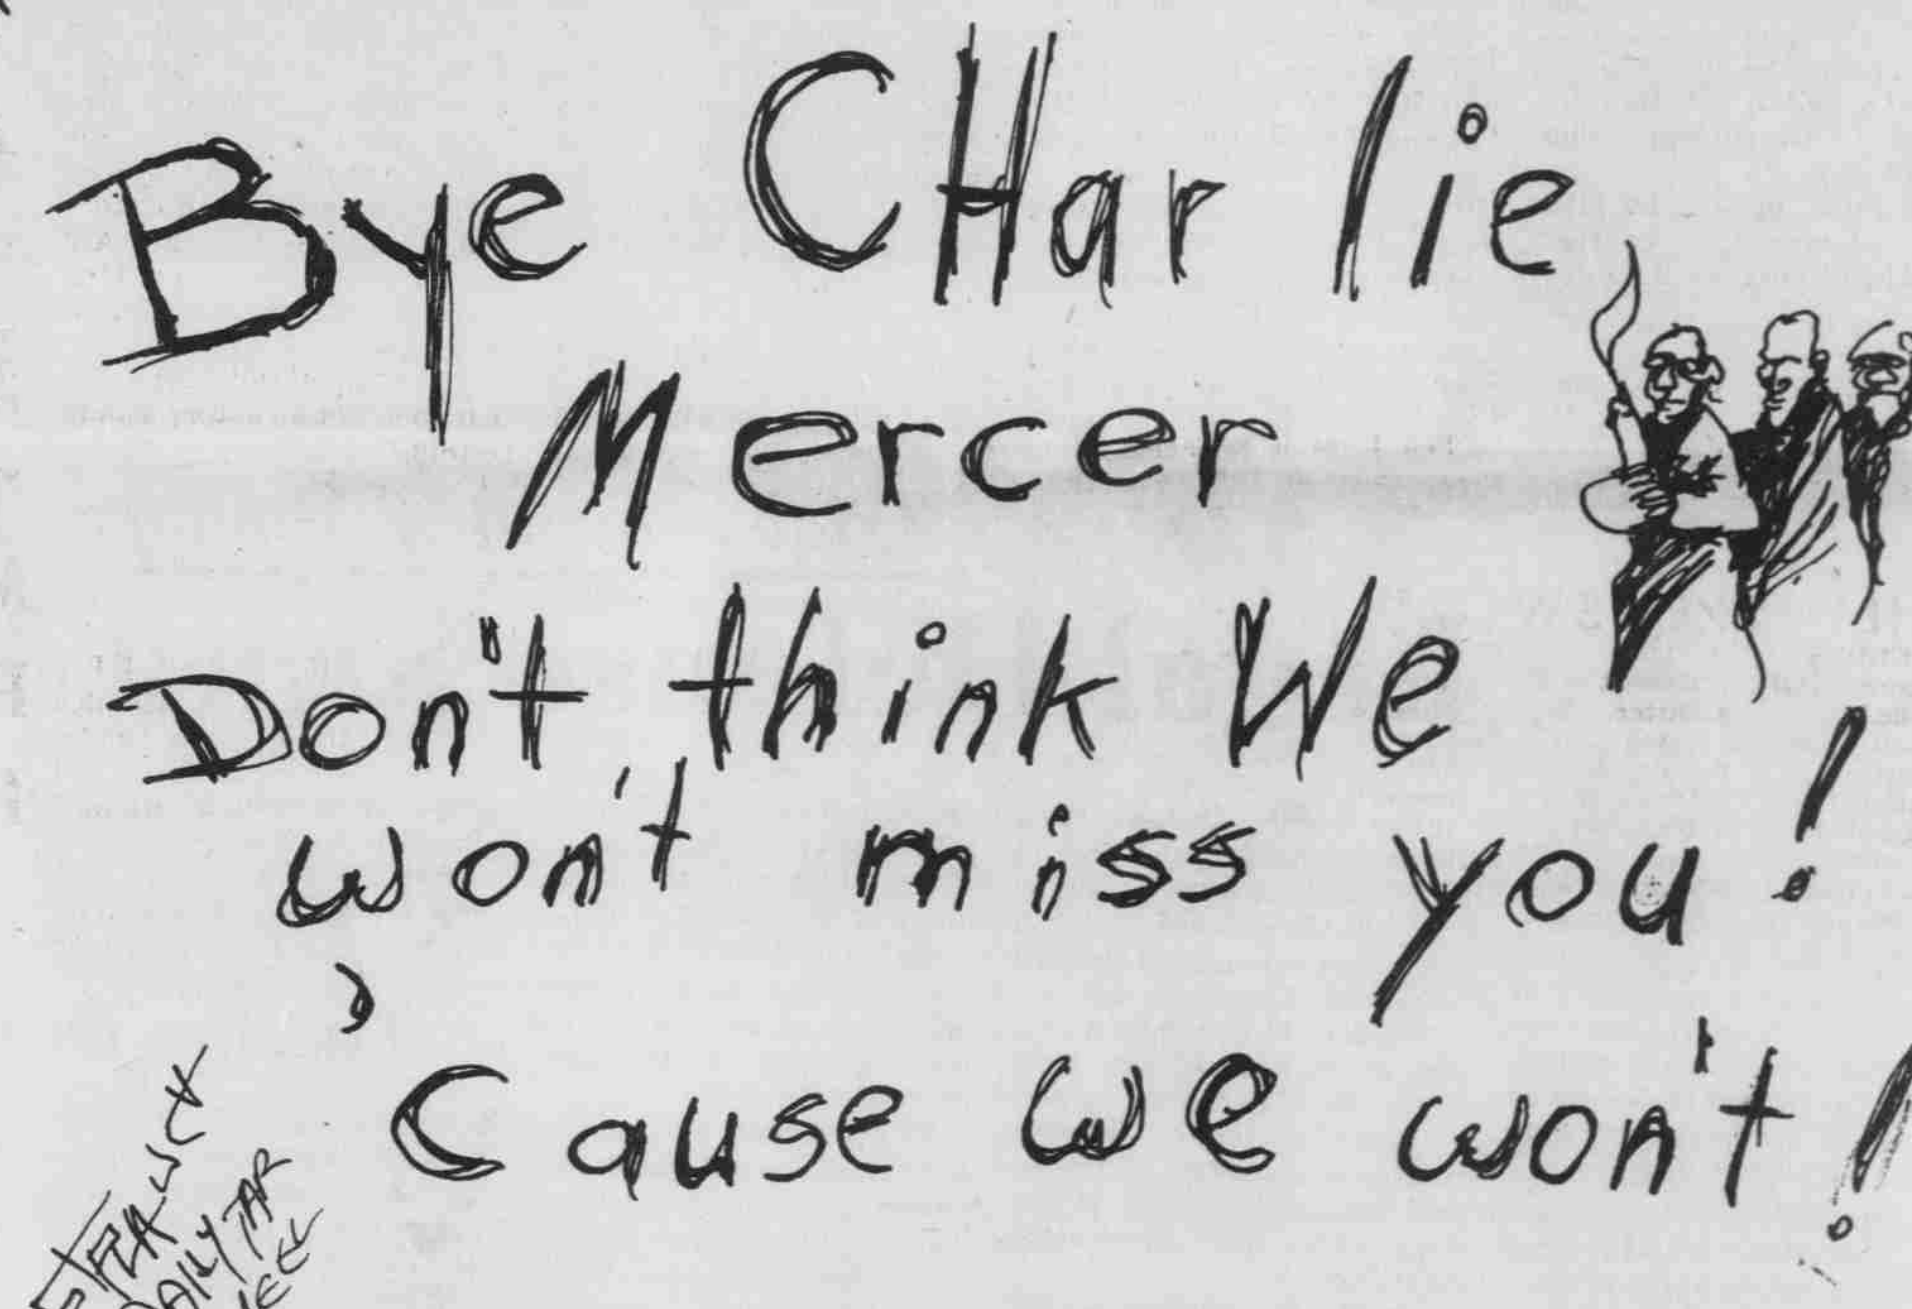 Bye CHarlie
Mercer
Don't think We
won't miss you!
'Cause we won't!
DAILY TAR
HEEL